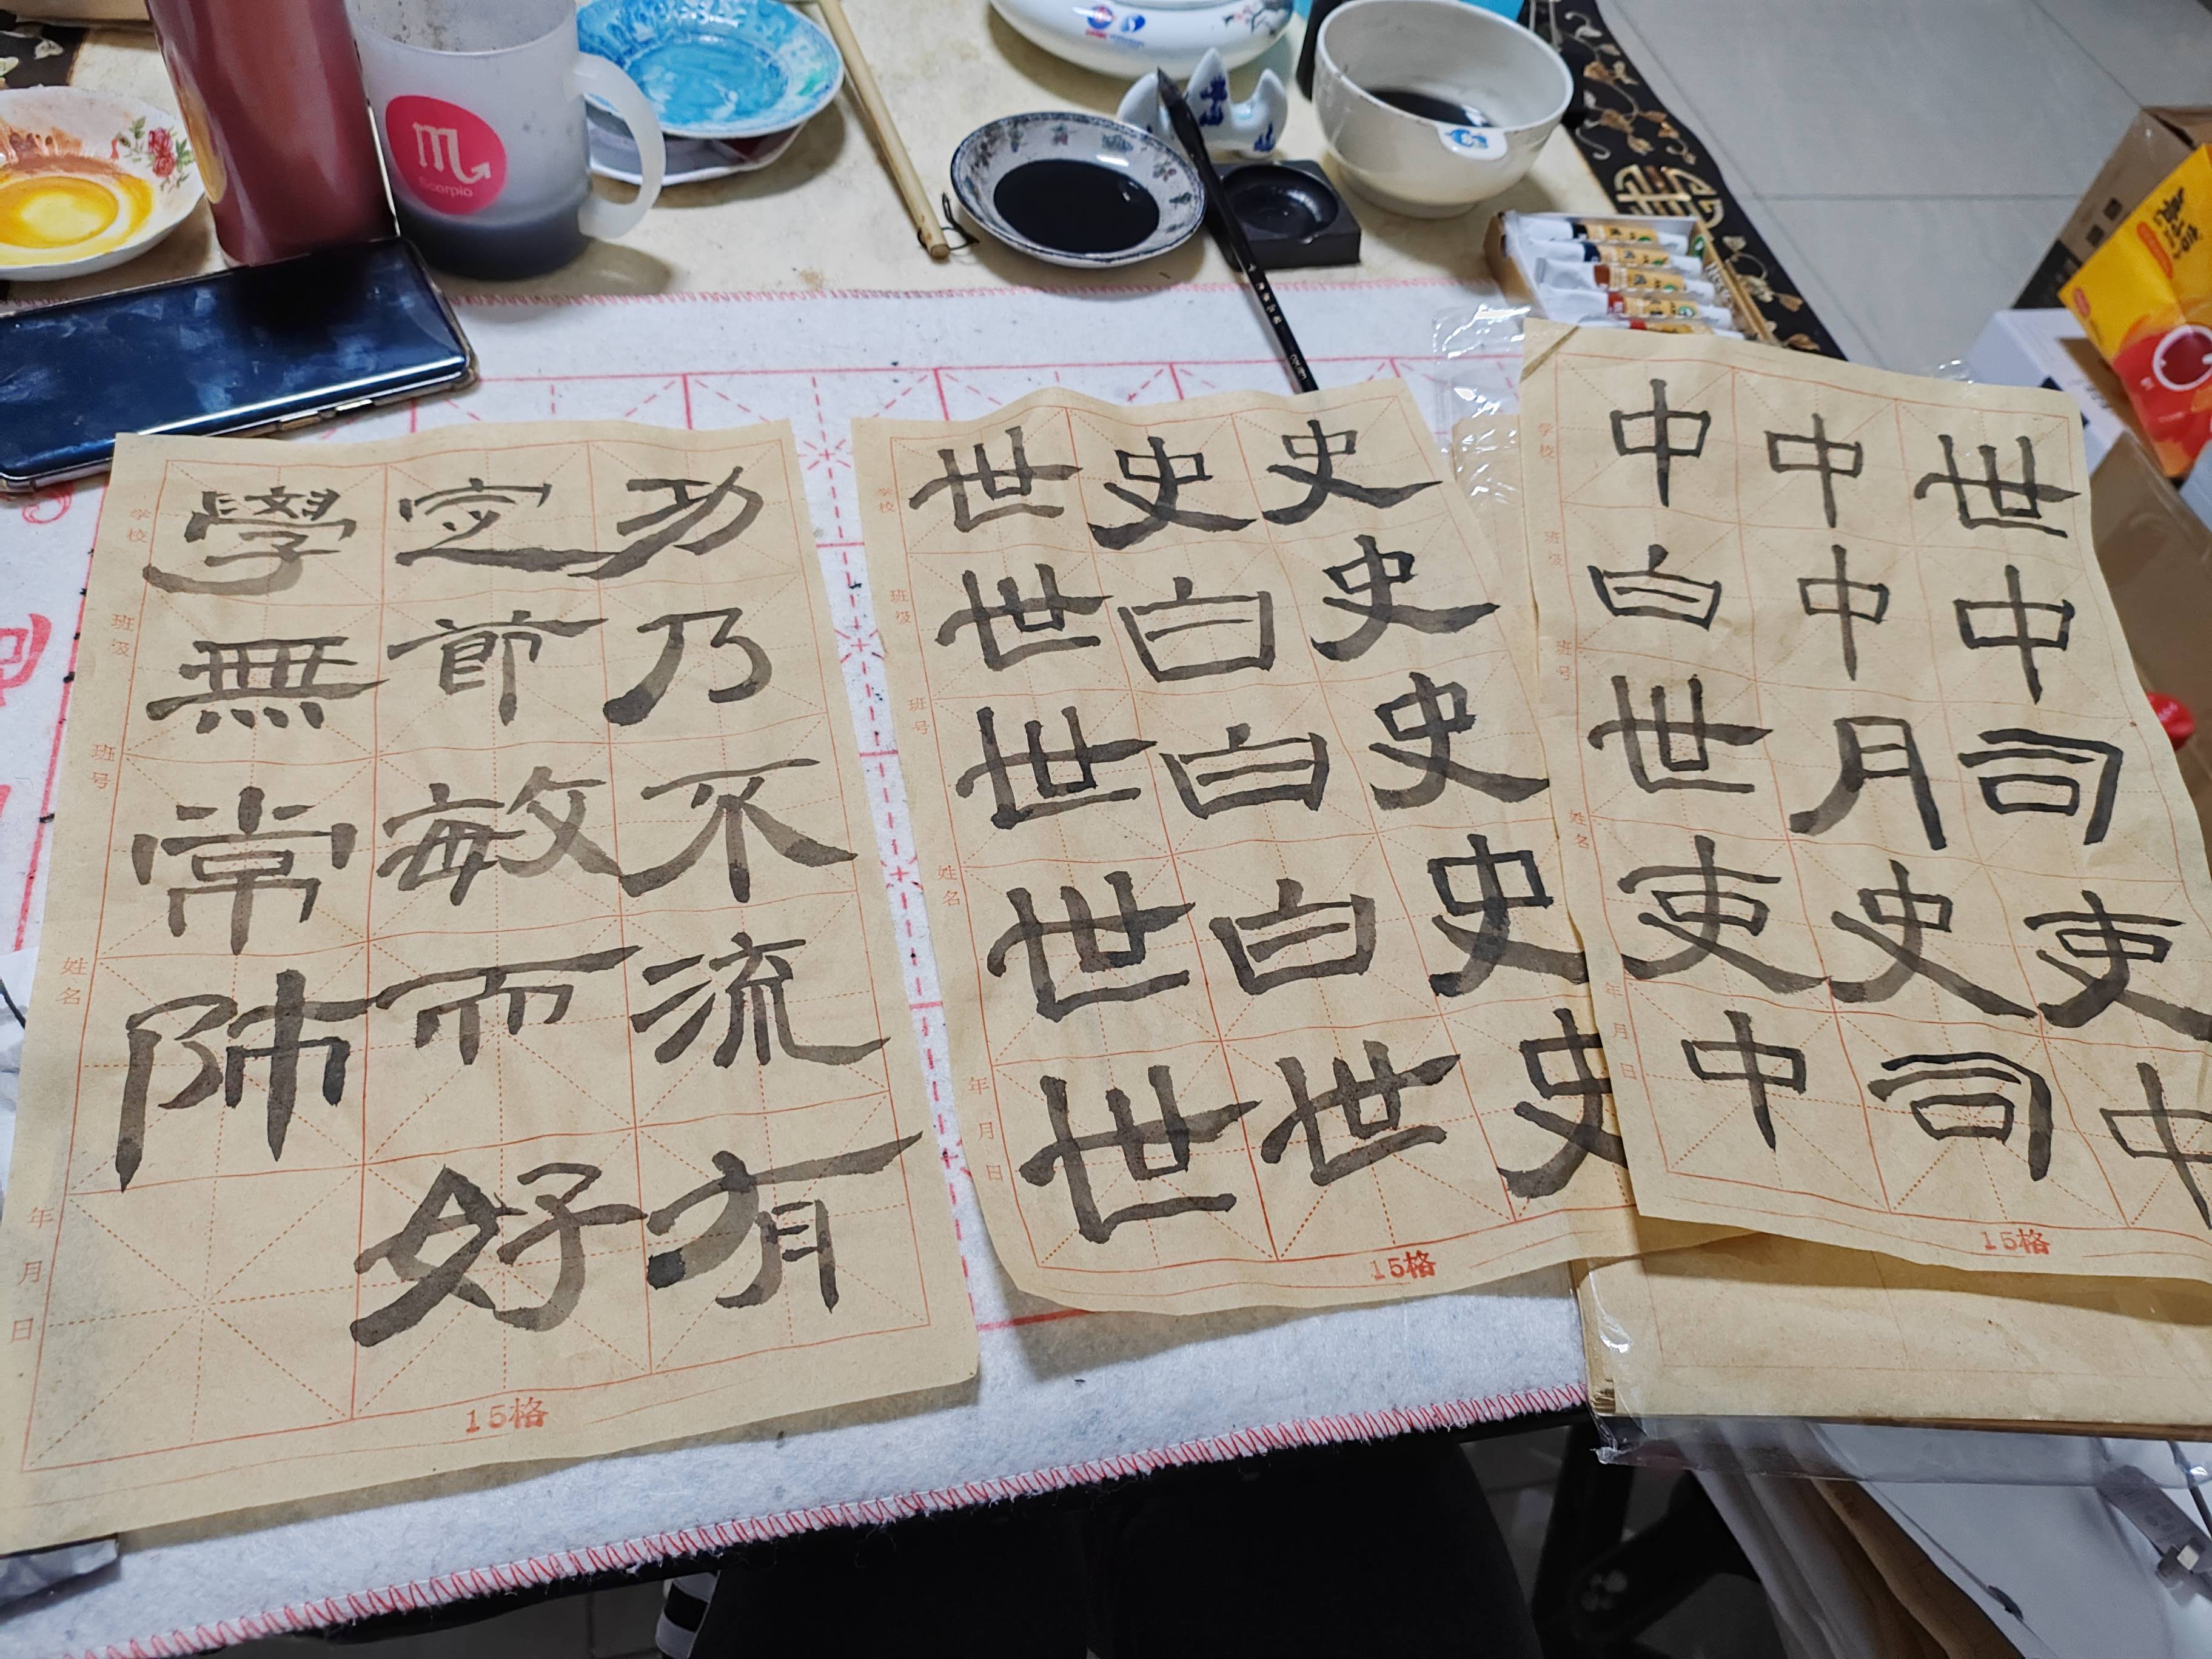 功乃不流有
定節敏而好
學無常師
学校
班级
班号
姓名
年月日
15格
史史史史史
史白白白世
世世世世世
学校
班级
班号
姓名
年月日
15格
世中司吏中
中中月史司
中白世吏中
学校
班级
班号
姓名
年月日
15格
Scorpio